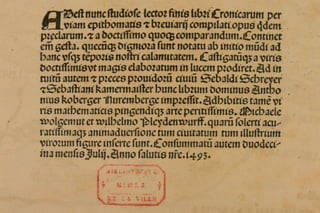 ADest nunc studiose lector finis libri Cronicarum per
viam epithomatis & breuiarij compilati opus qdem
preclarum. & a doctissimo quoqz comparandum. Continet
em gesta. quecuqz digniora sunt notatu ab initio mudi ad
hanc vsqz teporis nostri calamitatem. Castigatuqz a viris
doctissimis vt magis elaboratum in lucem prodiret. Ad in
tuitu autem & preces prouidoru ciuiu Sebaldi Schreyer
& Sebastiani kamermaister hunc librum dominus Antho
nius koberger Nuremberge impressit. Adhibitis tame vi
ris mathematicis pingendiqz arte peritissimis. Michaele
wolgemut et wilhelmo Pleydenwurff. quaru solerti acu
ratissimaqz animaduersione tum ciuitatum tum illustrium
virorum figure inserte sunt. Consummatu autem duodeci
ma mensis Julij. Anno salutis nre. 1493.
BIBLIOTHEQUE
DE LA VILLE